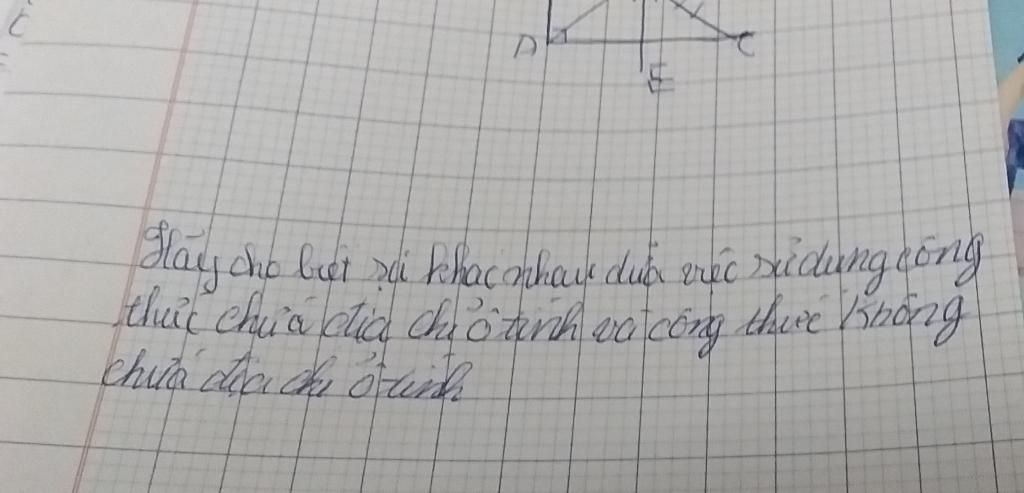 D C
E
Hãy cho biết sự khác nhau giữa việc sử dụng công
thức chứa địa chỉ ô tính và công thức không
chứa địa chỉ ô tính